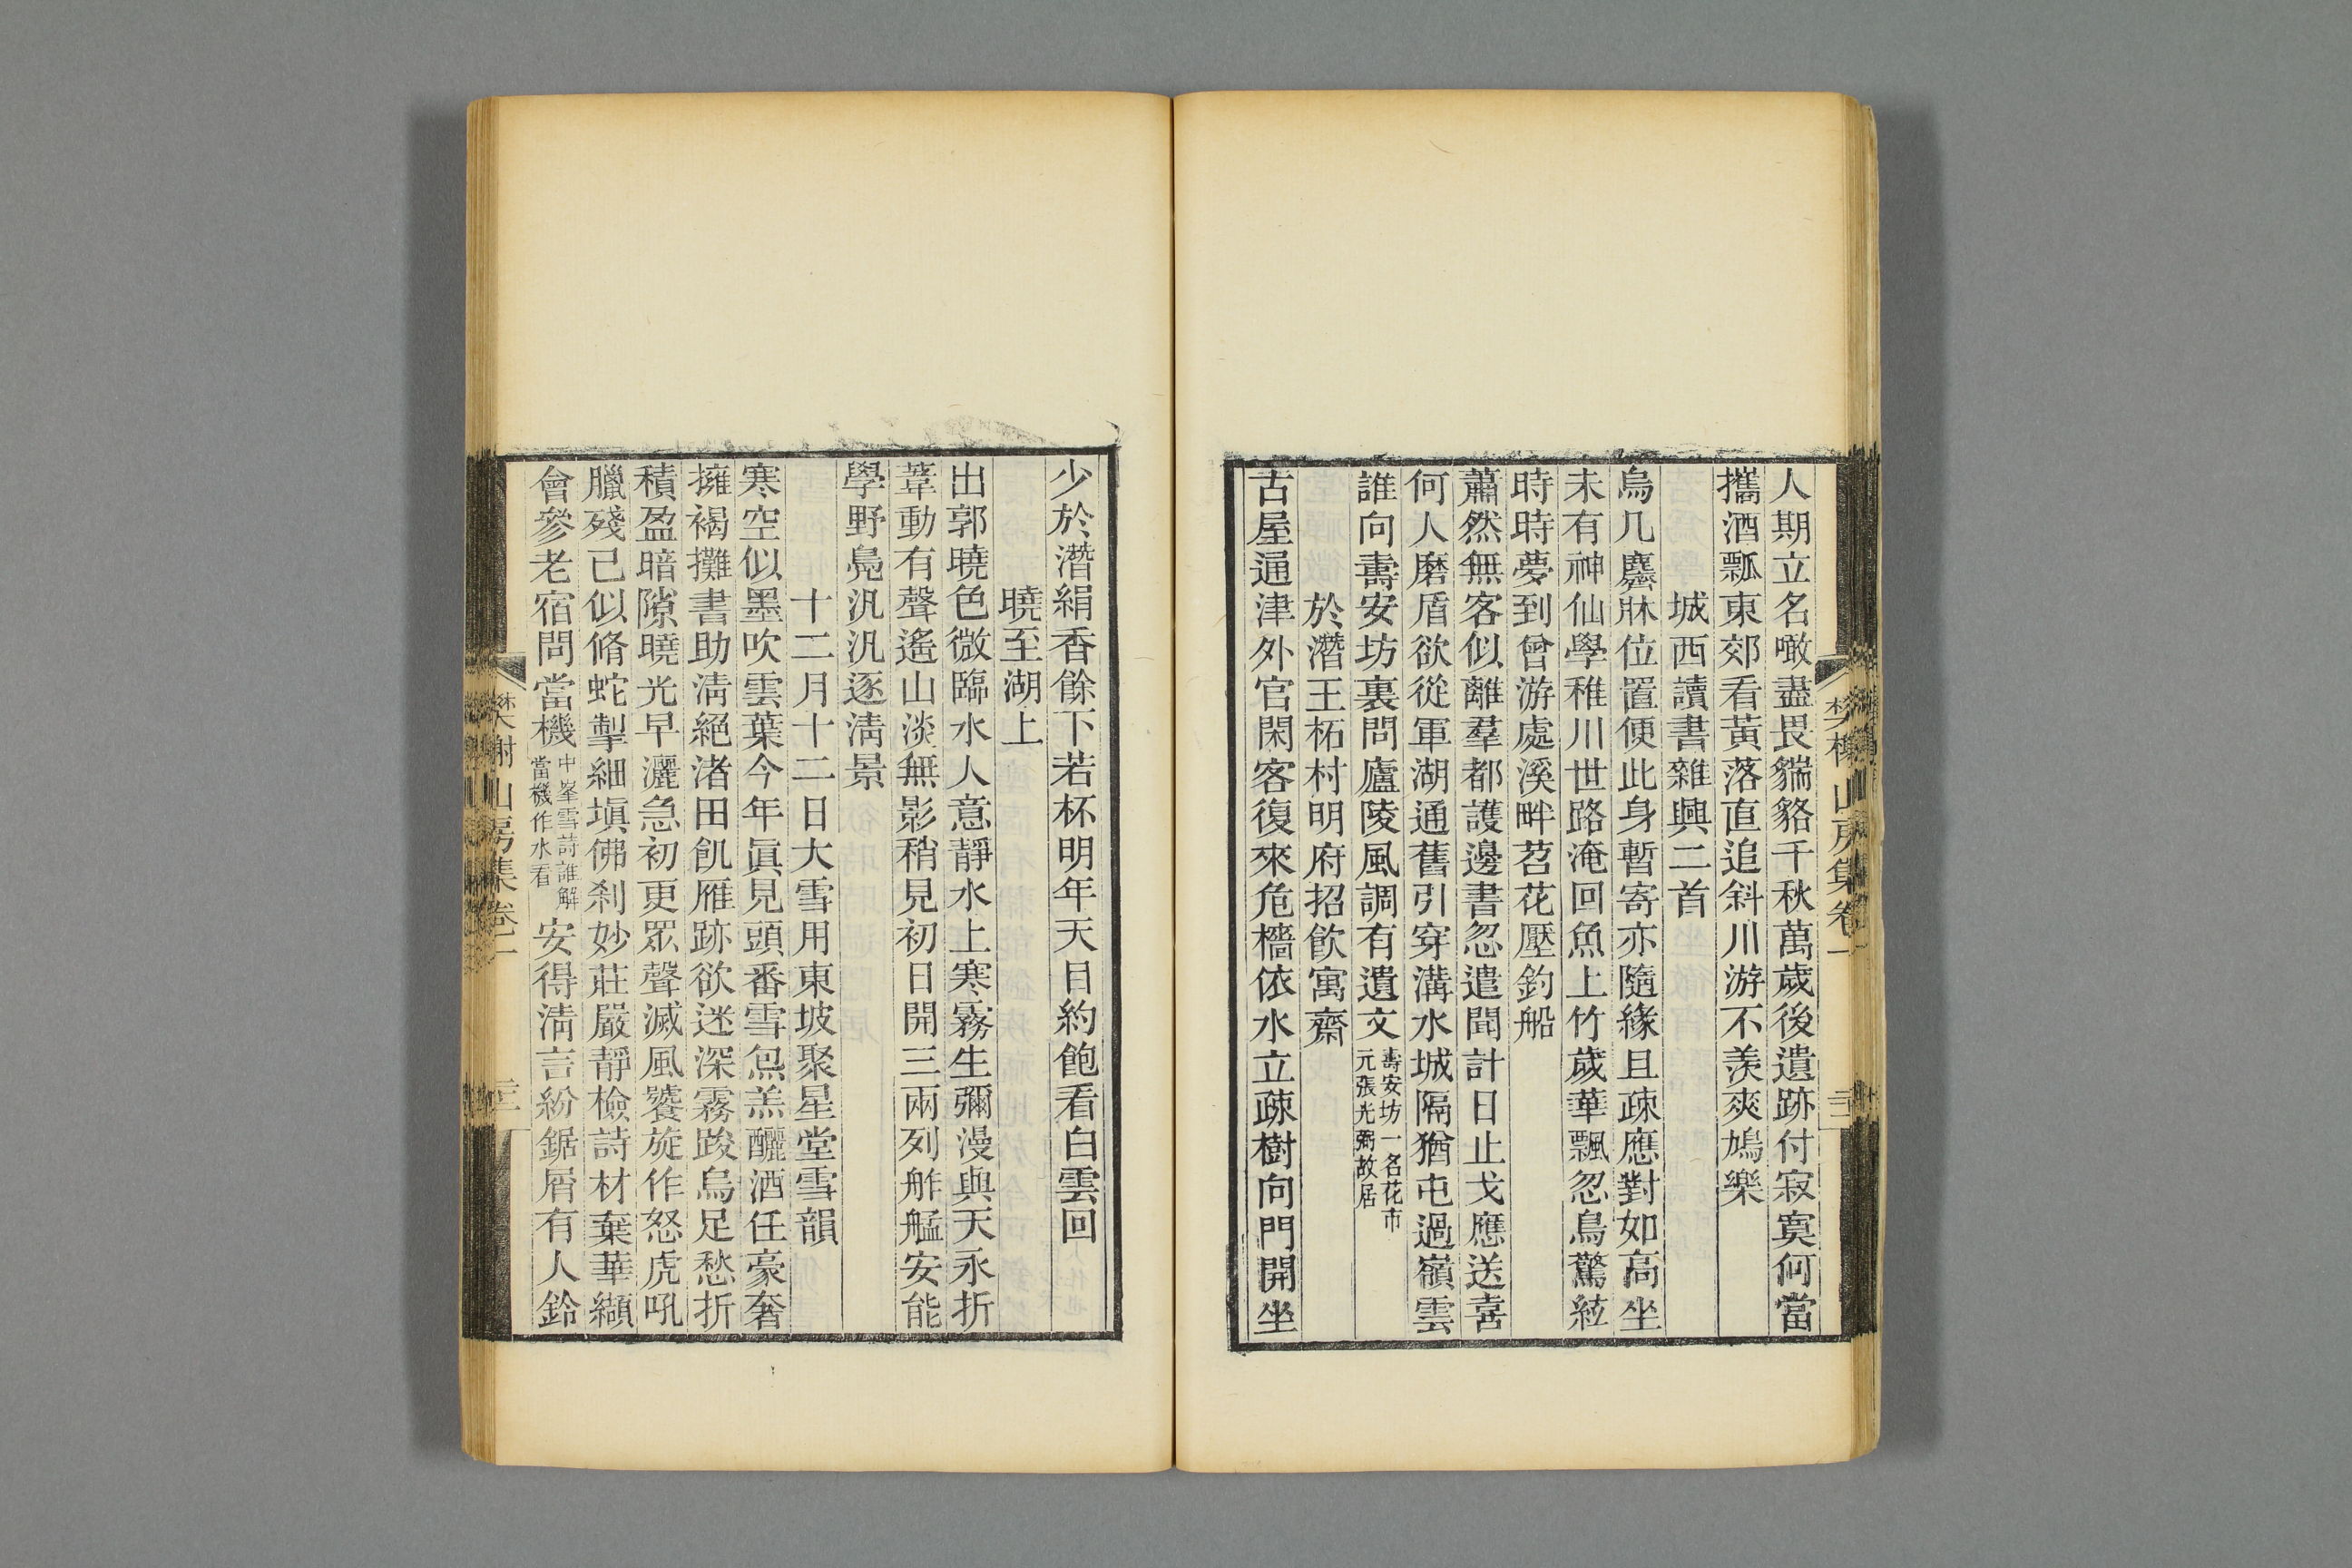 人期立名噉盡畏貒貉千秋萬歲後遺跡付寂寞何當
攜酒瓢東郊看黃落直追斜川游不羨爽鳩樂
城西讀書雜興二首
烏几麤牀位置便此身暫寄亦隨緣且疎應對如高坐
未有神仙學稚川世路淹回魚上竹歲華飄忽鳥驚絃
時時夢到曾游處溪畔苕花壓釣船
蕭然無客似離羣都護邊書忽遣聞計日止戈應送喜
何人磨盾欲從軍湖通舊引穿溝水城隔猶屯過嶺雲
誰向壽安坊裏問廬陵風調有遺文壽安坊一名花市元張光弼故居
於潛王柘村明府招飲寓齋
古屋通津外官閑客復來危檣依水立疎樹向門開坐
樊榭山房集卷二
少於潛絹香餘下若杯明年天目約飽看白雲回
曉至湖上
出郭曉色微臨水人意靜水上寒霧生彌漫與天永折
葦動有聲遙山淡無影稍見初日開三兩列舴艋安能
學野鳧汎汎逐清景
十二月十二日大雪用東坡聚星堂雪韻
寒空似墨吹雲葉今年眞見頭番雪炰羔釃酒任豪奢
擁褐攤書助淸絕渚田飢雁跡欲迷深霧踆烏足愁折
積盈暗隙曉光早灑急初更眾聲滅風饕旋作怒虎吼
臘殘已似脩蛇掣細塡佛刹妙莊嚴靜檢詩材棄華纈
會參老宿問當機中峯雪詩誰解當機作水看安得淸言紛鋸屑有人鈴
樊榭山房集卷二